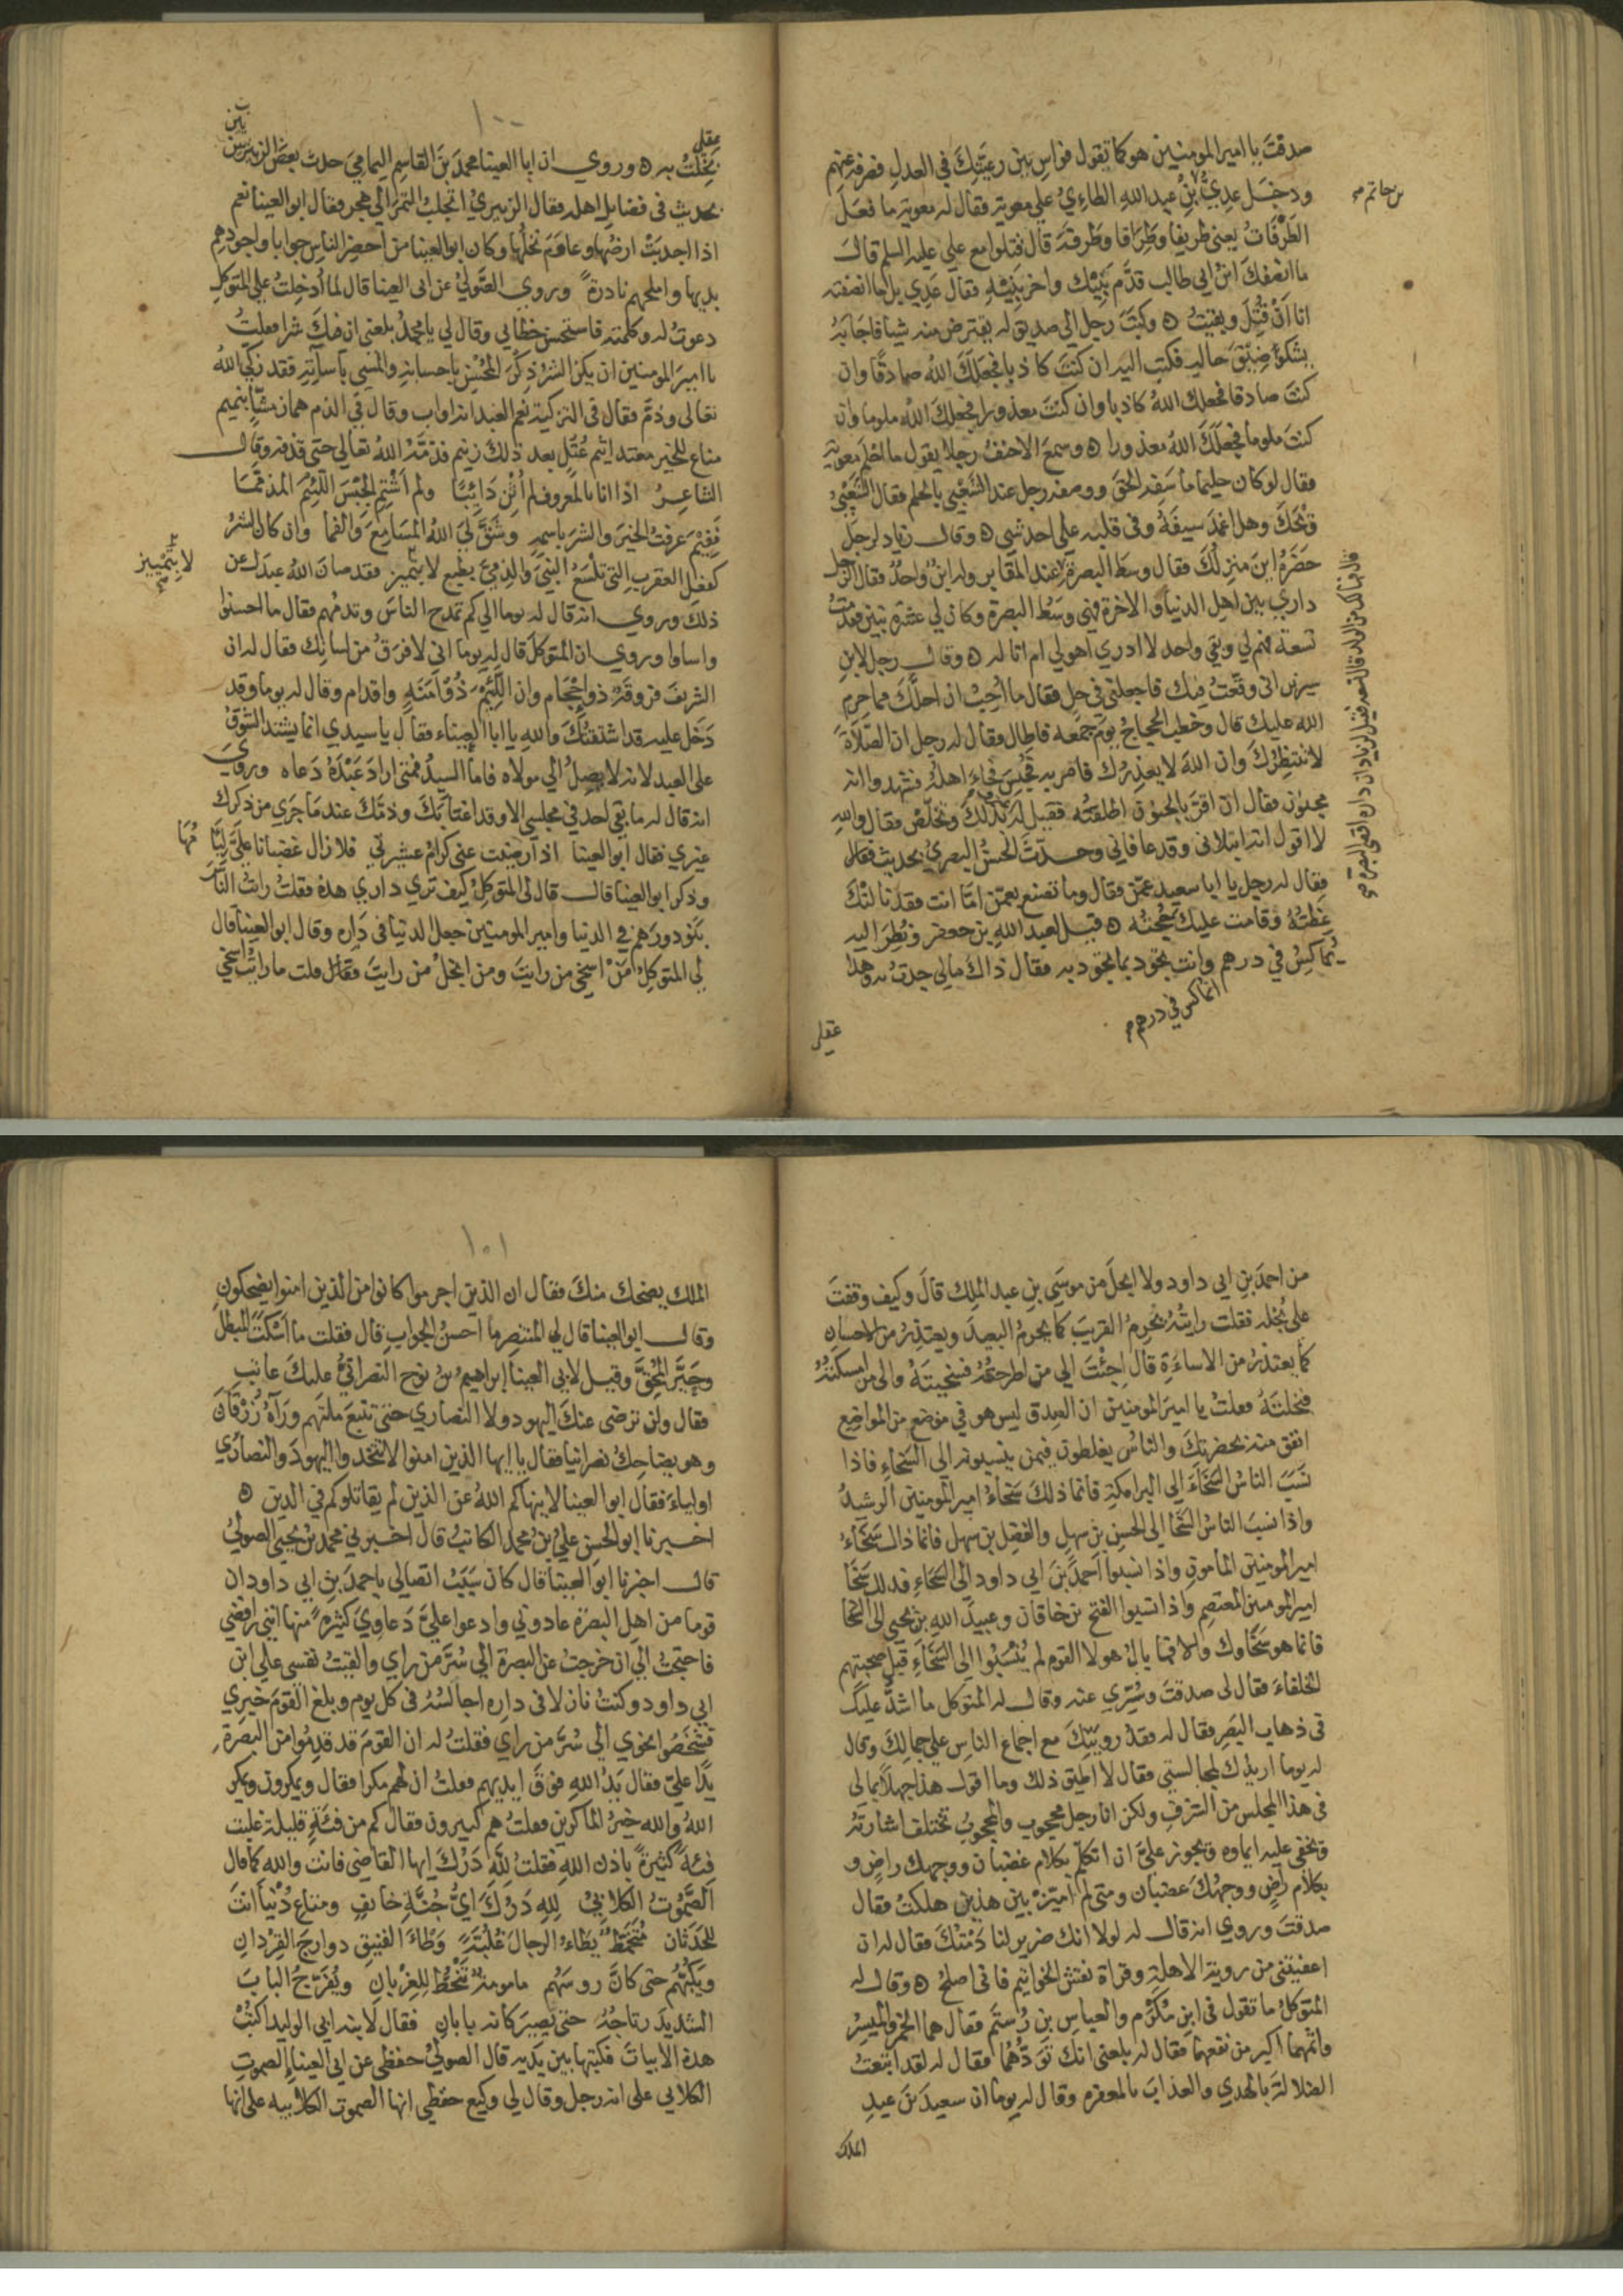 صدقتَ يا امير المومنين هو كما تقول فواسِ بين رعيتك في العدل فصرفه عنهم
ودخل عدي بن عبد الله الطاءي علي معوية فقال له معوية ما فعل
بن حاتم صح
الطرفات يعني طريفا وطرافا وطرفة قال قتلوا مع علي عليه السلم قال
ما انصفك ابن ابي طالب قدّم بَنِيك واخر بَنِيْهِ فقال عدي بل انا ما انصفته
انا اَنْ قُتِلَ وبقيتُ ۵ وكتب رجل الي صديق له يقترض منه شيا فاجابه
يشكو ضيق حاله فكتب اليه ان كنتَ كاذبا فجعلك الله صادقا وان
كنت صادقا فجعلك الله كاذبا وان كنت معذورا فجعلك الله ملوما وان
كنت ملوما فجعلك الله معذورا ۵ وسمع الاحنف رجلا يقول ما احلم معوية
فقال لو كان حليما ما سفه الحق ووصفه رجل عند الشعبي بالحلم فقال الشعبي
ويحك وهل اغمد سيفه وفي قلبه علي احد شي ۵ وقال زياد لرجل
حضره اين منزلك فقال وسط البصرة عند المقابر وله ابن واحد فقال الرجل
داري بين اهل الدنيا والاخرة فهي وسط البصرة وكان لي عشرة بنين فقدمت
تسعة فهم لي وبقي واحد لا ادري اهو لي ام انا له ۵ وقال رجل لابن
سيرين اني وقعت فيك فاجعلني في حل فقال ما احب ان احلك مما حرم
الله عليك قال وخطب الحجاج يوم جمعه فاطال فقال له رجل ان الصلاة
لا تنتظرك وان الله لا يعذرك فامر به فحبس فجاء اهله فشهدوا انه
مجنون فقال ان اقر بالجنون اطلقته فقيل له بذلك وتخلص فقال والله
لا اقول انه ابتلاني وقد عافاني وحدث الحسن البصري بحديث
فقال له رجل يا ابا سعيد عمن فقال وما تصنع بعمن اما انت فقد نالتك
عظته وقامت عليك حجته ۵ قيل لعبد الله بن جعفر ونظر اليه
يماكس في درهم وانت تجود بما تجود به فقال ذاك مالي جدت به وهذا
اتماكس في درهم
عقلي
١٠٠
عقلي
بخلت به ۵ وروي ان ابا العينا محمد بن القاسم اليمامي حدث بعض الزبيريين
بحديث في فضايل اهله فقال الزبيري اتجلب التمر الي هجر فقال ابو العينا نعم
اذا اجدبت ارضها وعاوم نخلها وكان ابو العينا من احضر الناس جوابا واجودهم
بديها واملحهم نادرة وروي الصولي عن ابي العينا قال لما أُدخلت علي المتوكل
دعوت له وكلمته فاستحسن خطابي وقال لي يا محمد بلغني ان فيك شرا فقلت
يا امير المومنين ان يكن الشر ذكر المحسن باحسانه والمسي باسآتِه فقد زكي الله
تعالي وذم فقال في التزكية نعم العبد انه اواب وقال في الذم هماز مشا بنميم
مناع للخير معتد اثيم عُتُلٍّ بعد ذلك زنيم فذمه الله تعالي حتي قذفه وقال
الشاعر اذا انا بالمعروف لم اُثن دايبًا ولم اشتم الجبس اللئيم المذمما
ففيم عرفت الخير والشر باسمه وشق لي الله المسامع والفما وان كان الشر
كفعل العقرب التي تلسع النبي والذمي بطبع لا بتميز فقد صان الله عبدك عن
لا بتمييز
ذلك وروي انه قال له يوما الي كم تمدح الناس وتذمهم فقال ما احسنوا
واساوا وروي ان المتوكل قال له يوما اني لافرق من لسانك فقال له ان
الشريف فروقة ذو احجام وان اللئيم ذو امنة واقدام وقال له يوما وقد
دخل عليه قد اشتقتك والله يا ابا العيناء فقال يا سيدي انما يشتد الشوق
علي العبد لانه لا يصل الي مولاه فاما السيد فمتي اراد عبده دعاه وروي
انه قال له ما بقي احد في مجلسي الا وقد اغتابك وذمك عند ما جري من ذكرك
غيري فقال ابو العينا اذا رضيت عني كرام عشيرتي فلا زال غضبانا علي ليامها
وذكر ابو العينا قال قال لي المتوكل كيف تري داري هذه فقلت رايت الناس
بنو دورهم في الدنيا وامير المومنين جعل الدنيا في داره وقال ابو العينا قال
لي المتوكل من اسخي من رايت ومن ابخل من رايت فقال قلت ما رايت اسخي
من احمد بن ابي داود ولا ابخل من موسي بن عبد الملك قال وكيف وقفت
علي بخله فقلت رايته يحرم القريب كما يحرم البعيد ويعتذر من الاحسان
كما يعتذر من الاساءة قال جئت الي من اطرحته فسخيته والي من امسكته
فبخلته فقلت يا امير المومنين ان الصدق ليس هو في موضع من المواضع
انفق منه بحضرتك والناس يغلطون فيمن ينسبونه الي السخاء فاذا
نسب الناس السخاء الي البرامكة فانما ذلك سخاء امير المومنين الرشيد
واذا نسب الناس السخا الي الحسن بن سهل والفضل بن سهل فانما ذاك سخاء
امير المومنين المامون واذا نسبوا احمد بن ابي داود الي السخاء فذلك سخا
امير المومنين المعتصم واذا نسبوا الفتح بن خاقان وعبيد الله بن يحيي الي السخا
فانما هو سخاوك والا فما بال هولا القوم لم يُنْسَبُوا الي السخاء قبل صحبتهم
الخلفاء فقال لي صدقت وسري عنه وقال له المتوكل ما اشد عليك
في ذهاب البصر فقال له فقد رويتك مع اجماع الناس علي جمالك وقال
له يوما اريدك لمجالستي فقال لا اطيق ذلك وما اقول هذا جهلا بما لي
في هذا المجلس من الشرف ولكن انا رجل محجوب والمحجوب تختلف اشارته
ويخفي عليه ايماوه ويجوز علي ان اتكلم بكلام غضبان ووجهك راض و
بكلام راض ووجهك غضبان ومتي لم اميز بين هذين هلكت فقال
صدقت وروي انه قال له لولا انك ضرير لنادمتك فقال له ان
اعفيتني من روية الاهلة وقراة نقش الخواتيم فاني اصلح ۵ وقال له
المتوكل ما تقول في ابن مكرم والعباس بن رستم فقال هما الخمر والميسر
واثمهما اكبر من نفعهما فقال له بلغني انك تودهما فقال له لقد ابتعت
الضلالة بالهدي والعذاب بالمغفرة وقال له يوما ان سعيد بن عبد
الملك
١٠١
الملك يضحك منك فقال ان الذين اجرموا كانوا من الذين امنوا يضحكون
وقال ابو العينا قال لي المنتصر ما احسن الجواب قال فقلت ما اسكت المبطل
وحير المحق وقيل لابي العينا ابراهيم بن نوح النصراني عليك عاتب
فقال ولن ترضى عنك اليهود ولا النصاري حتي تتبع ملتهم ورآه زرقان
وهو يضاحك نصرانيا فقال يا ايها الذين امنوا لا تتخذوا اليهود والنصاري
اولياء فقال ابو العينا لا ينهاكم الله عن الذين لم يقاتلوكم في الدين ۵
اخبرنا ابو الحسن علي بن محمد الكاتب قال اخبرني محمد بن يحيي الصولي
قال اخبرنا ابو العينا قال كان سَبَبُ اتصالي باحمد بن ابي داود ان
قوما من اهل البصرة عادوني وادعوا علي دعاوي كثيرة منها انني رافضي
فاحتجت الي ان خرجت عن البصرة الي سُرَّ من راي والقيت نفسي علي ابن
ابي داود وكنت نازلا في داره اجالسه في كل يوم وبلغ القوم خبري
فشخصوا نحوي الي سر من راي فقلت له ان القوم قد قدموا من البصرة
يدًا علي فقال يد الله فوق ايديهم فقلت ان لهم مكرا فقال ويمكرون ويمكر
الله والله خير الماكرين فقلت هم كبيرون فقال كم من فئة قليلة غلبت
فئة كثيرة باذن الله فقلت لله درك ايها القاضي فانت والله كما قال
الصموت الكلابي لله درك اي جُنَّةِ خايف ومتاع دنيا انت
للحدثان متخمط يطاء الرجال غلبة وطاء الفنيق دوارج القردان
ويكبهم حتي كان روسهم مامومة تنحط للغربان ويفرج الباب
الشديد رتاجه حتي يصير كانه بابان فقال لابنه ابي الوليد اكتب
هذه الابيات فكتبها بين يديه قال الصولي حفظي عن ابي العيناء الصموت
الكلابي علي انه رجل وقال لي وكيع حفظي انها الصموت الكلابيه علي انها